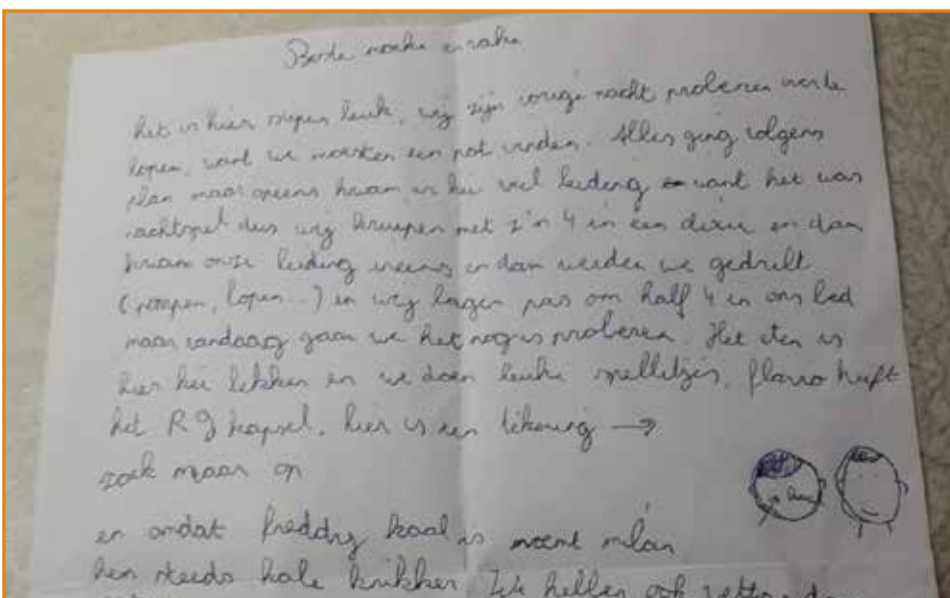 Beste moeke en vake
het is hier super leuk, wij zijn vorige nacht proberen weg te
lopen, want we moesten een pot vinden. Alles ging volgens
plan maar opeens kwam er hee veel leiding want het was
nachtspel dus wij kruipen met z'n 4 in een dixie en dan
kwam onze leiding ineens en dan werden we gedrilt
(pompen, lopen...) en wij lagen pas om half 4 in ons bed
maar vandaag gaan we het nog is proberen. Het eten is
hier hee lekker en we doen leuke spelletjes, heeft
het R9 kapsel, hier is een tekening →
zoek maar op
en omdat freddy kaal is noemt milan
hem steeds kale knikker. We hebben ook